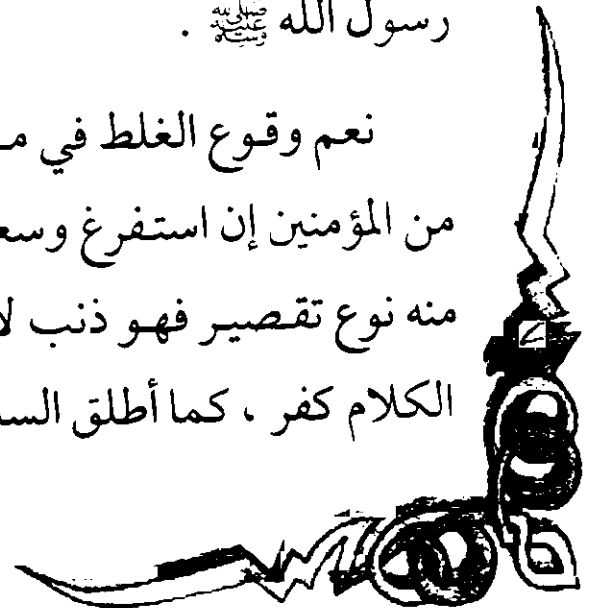 رسول الله ﷺ .
نعم وقوع الغلط في
من المؤمنين إن استفرغ
منه نوع تقصير فهو ذنب
الكلام كفر ، كما أطلق